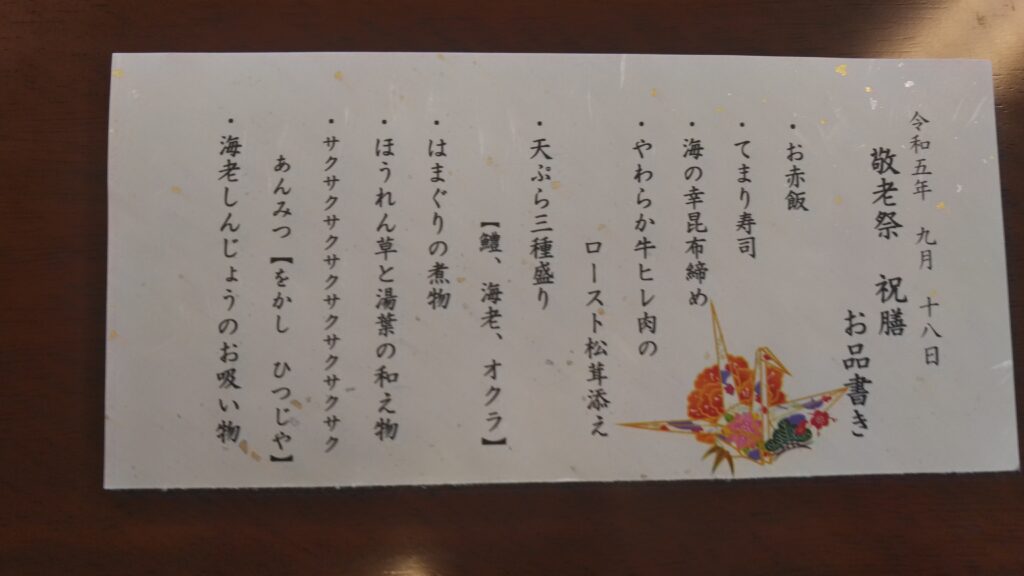 令和五年 九月 十八日
敬老祭 祝膳
お品書き
・お赤飯
・てまり寿司
・海の幸昆布締め
・やわらか牛ヒレ肉の
ロースト松茸添え
・天ぷら三種盛り
【鱧、海老、オクラ】
・はまぐりの煮物
・ほうれん草と湯葉の和え物
・サクサクサクサクサクサクサクサク
あんみつ【をかし ひつじや】
・海老しんじょうのお吸い物